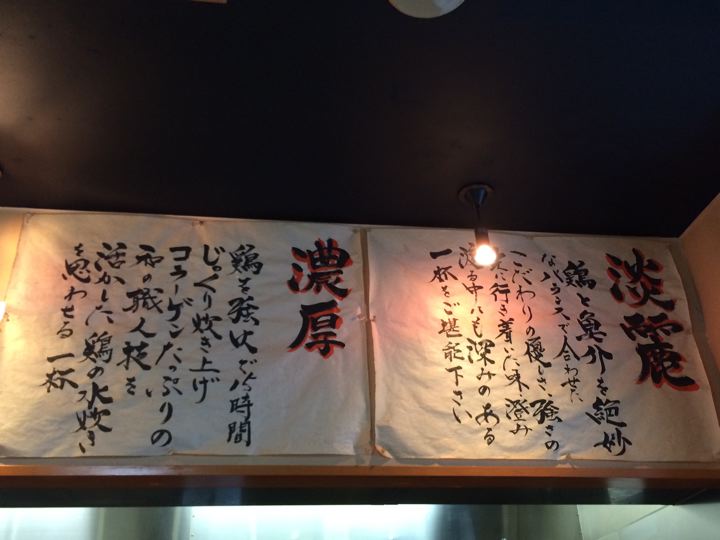 淡麗
鶏と魚介を絶妙
なバランスで合わせた
こだわりの優しさ、強さの
末に行き着いた味澄み
渡る中にも深みのある
一杯をご堪能下さい
濃厚
鶏を強火で八時間
じっくり炊き上げ
コラーゲンたっぷりの
和の職人技を
活かした、鶏の水炊き
を思わせる一杯